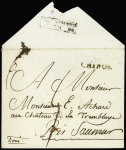 CHINON
A Monsieur
Monsieur E. Achard
au Château de La Tremblaye
Près Saumur